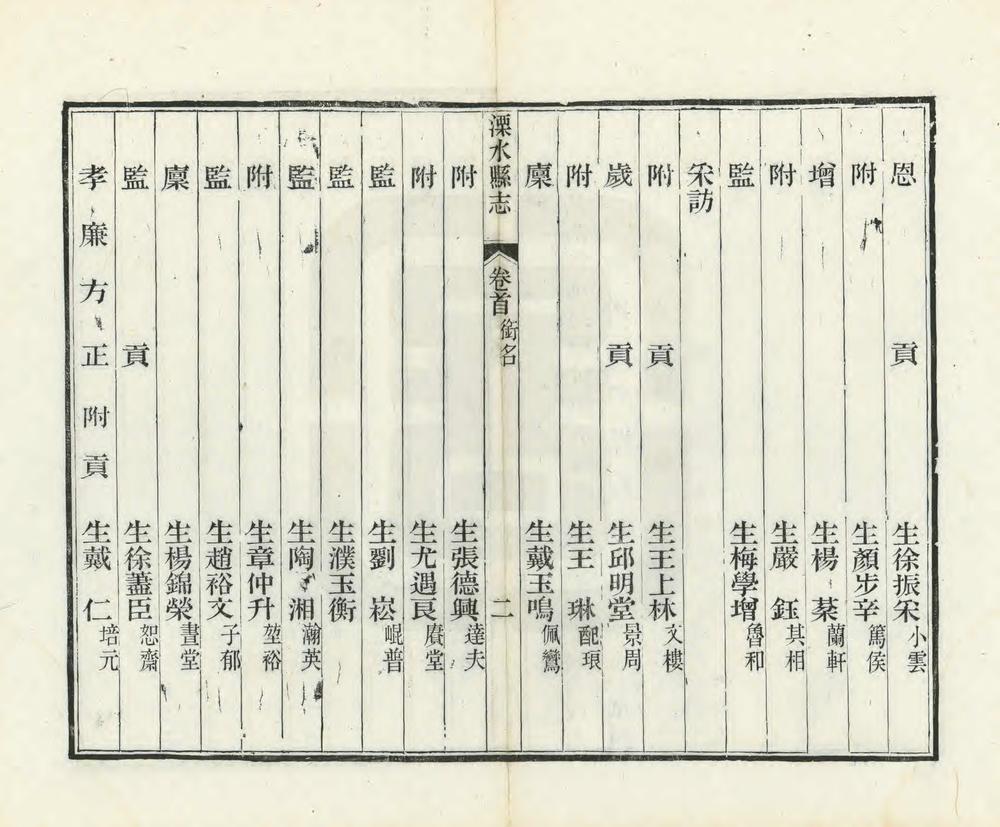 恩貢生徐振宋小雲
附生顏步辛篤侯
增生楊棻蘭軒
附生嚴鈺其相
監生梅學增魯和
采訪
附貢生王上林文樓
歲貢生邱明堂景周
附生王琳配琅
廩生戴玉鳴佩鸞
溧水縣志 卷首 銜名 二
附生張德興達夫
附生尤遇良賡堂
監生劉崧崐普
監生濮玉衡
監生陶湘瀚英
附生章仲升堃裕
監生趙裕文子郁
廩生楊錦榮晝堂
監貢生徐藎臣恕齋
孝廉方正附貢生戴仁培元